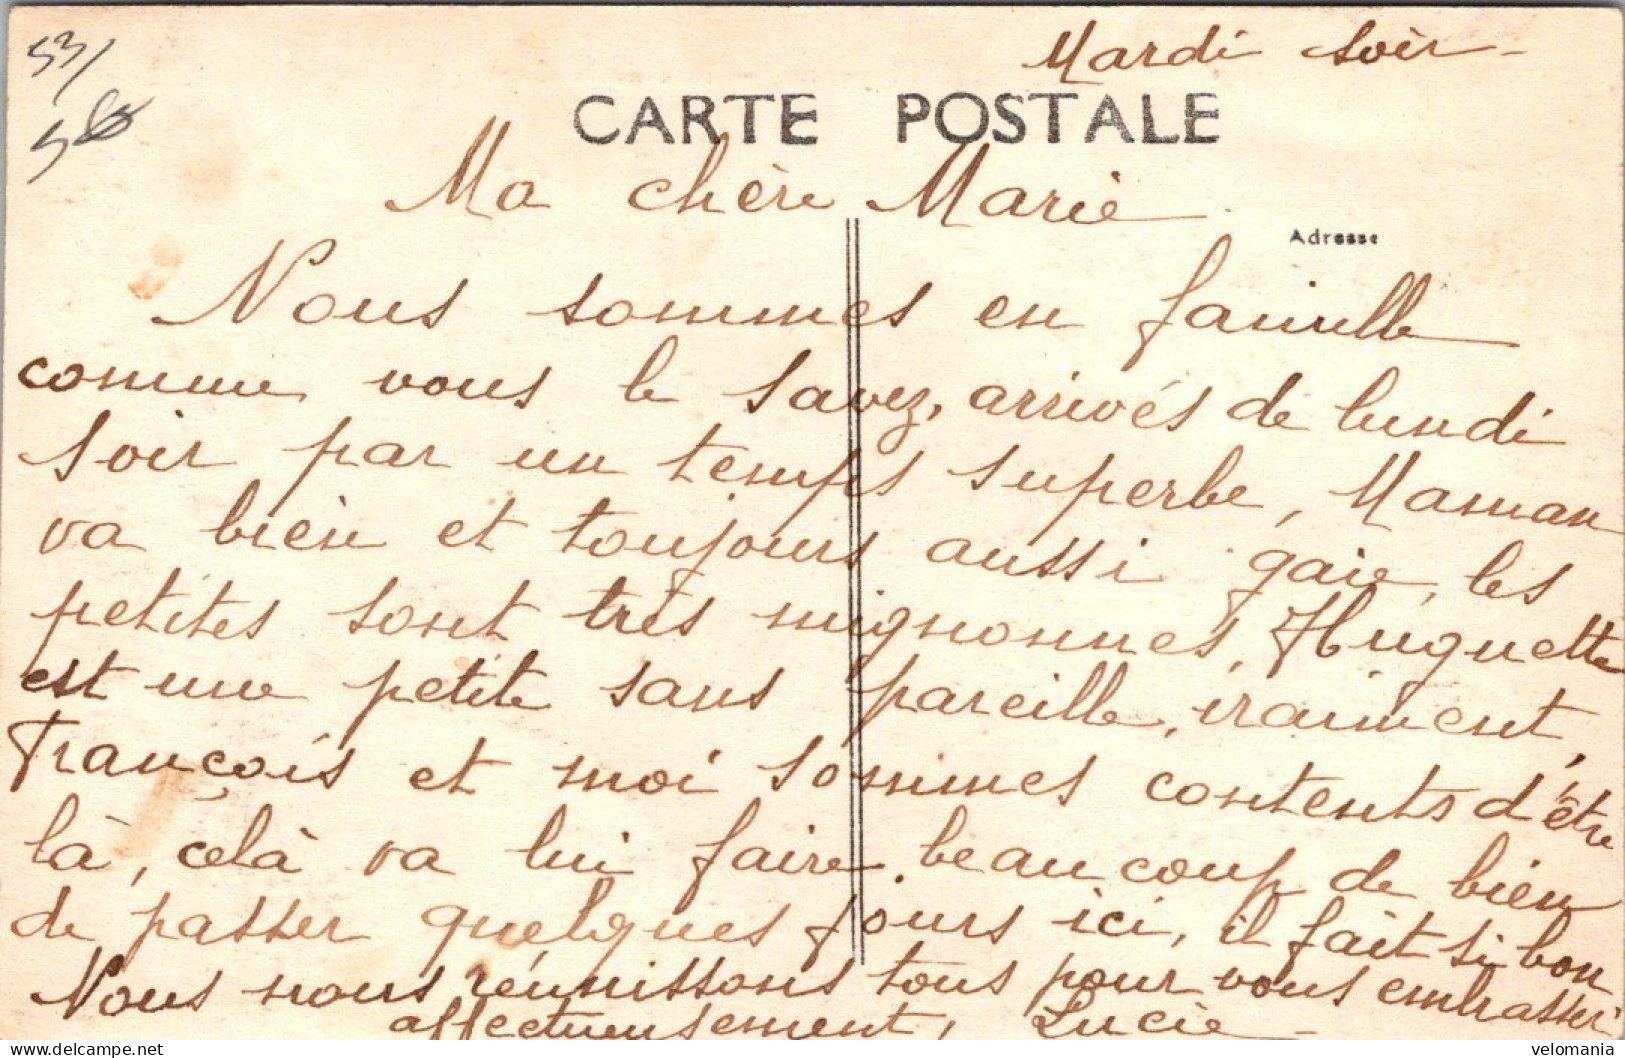 Mardi soir -
53/
CARTE POSTALE
Ma chère Marie
Adresse
Nous sommes en famille
comme vous le savez, arrivés de lundi
soir par un temps superbe, Maman
va bien et toujours aussi gaie, les
petites sont très mignonnes, Huguette
est une petite sans pareille, vraiment,
François et moi sommes contents d'être
là, celà va lui faire beaucoup de bien
de passer quelques jours ici, il fait si bon
Nous nous réunissons tous pour vous embrasser
affectueusement, Lucie -
velomania